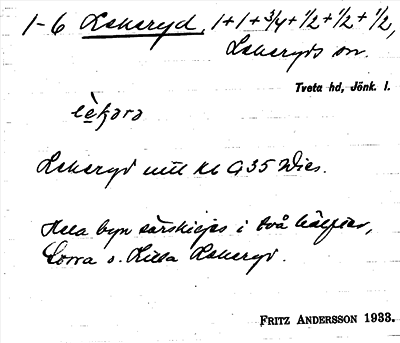 1-6 Lekeryd, 1+1+3/4+1/2+1/2+1/2,
Lekeryds sn.
Tveta hd, Jönk. l.
Lekeryd mtl Kb G35 Wies.
Hela byn särskiljes i två hälfter,
Stora o. Lilla Lekeryd.
FRITZ ANDERSSON 1933.